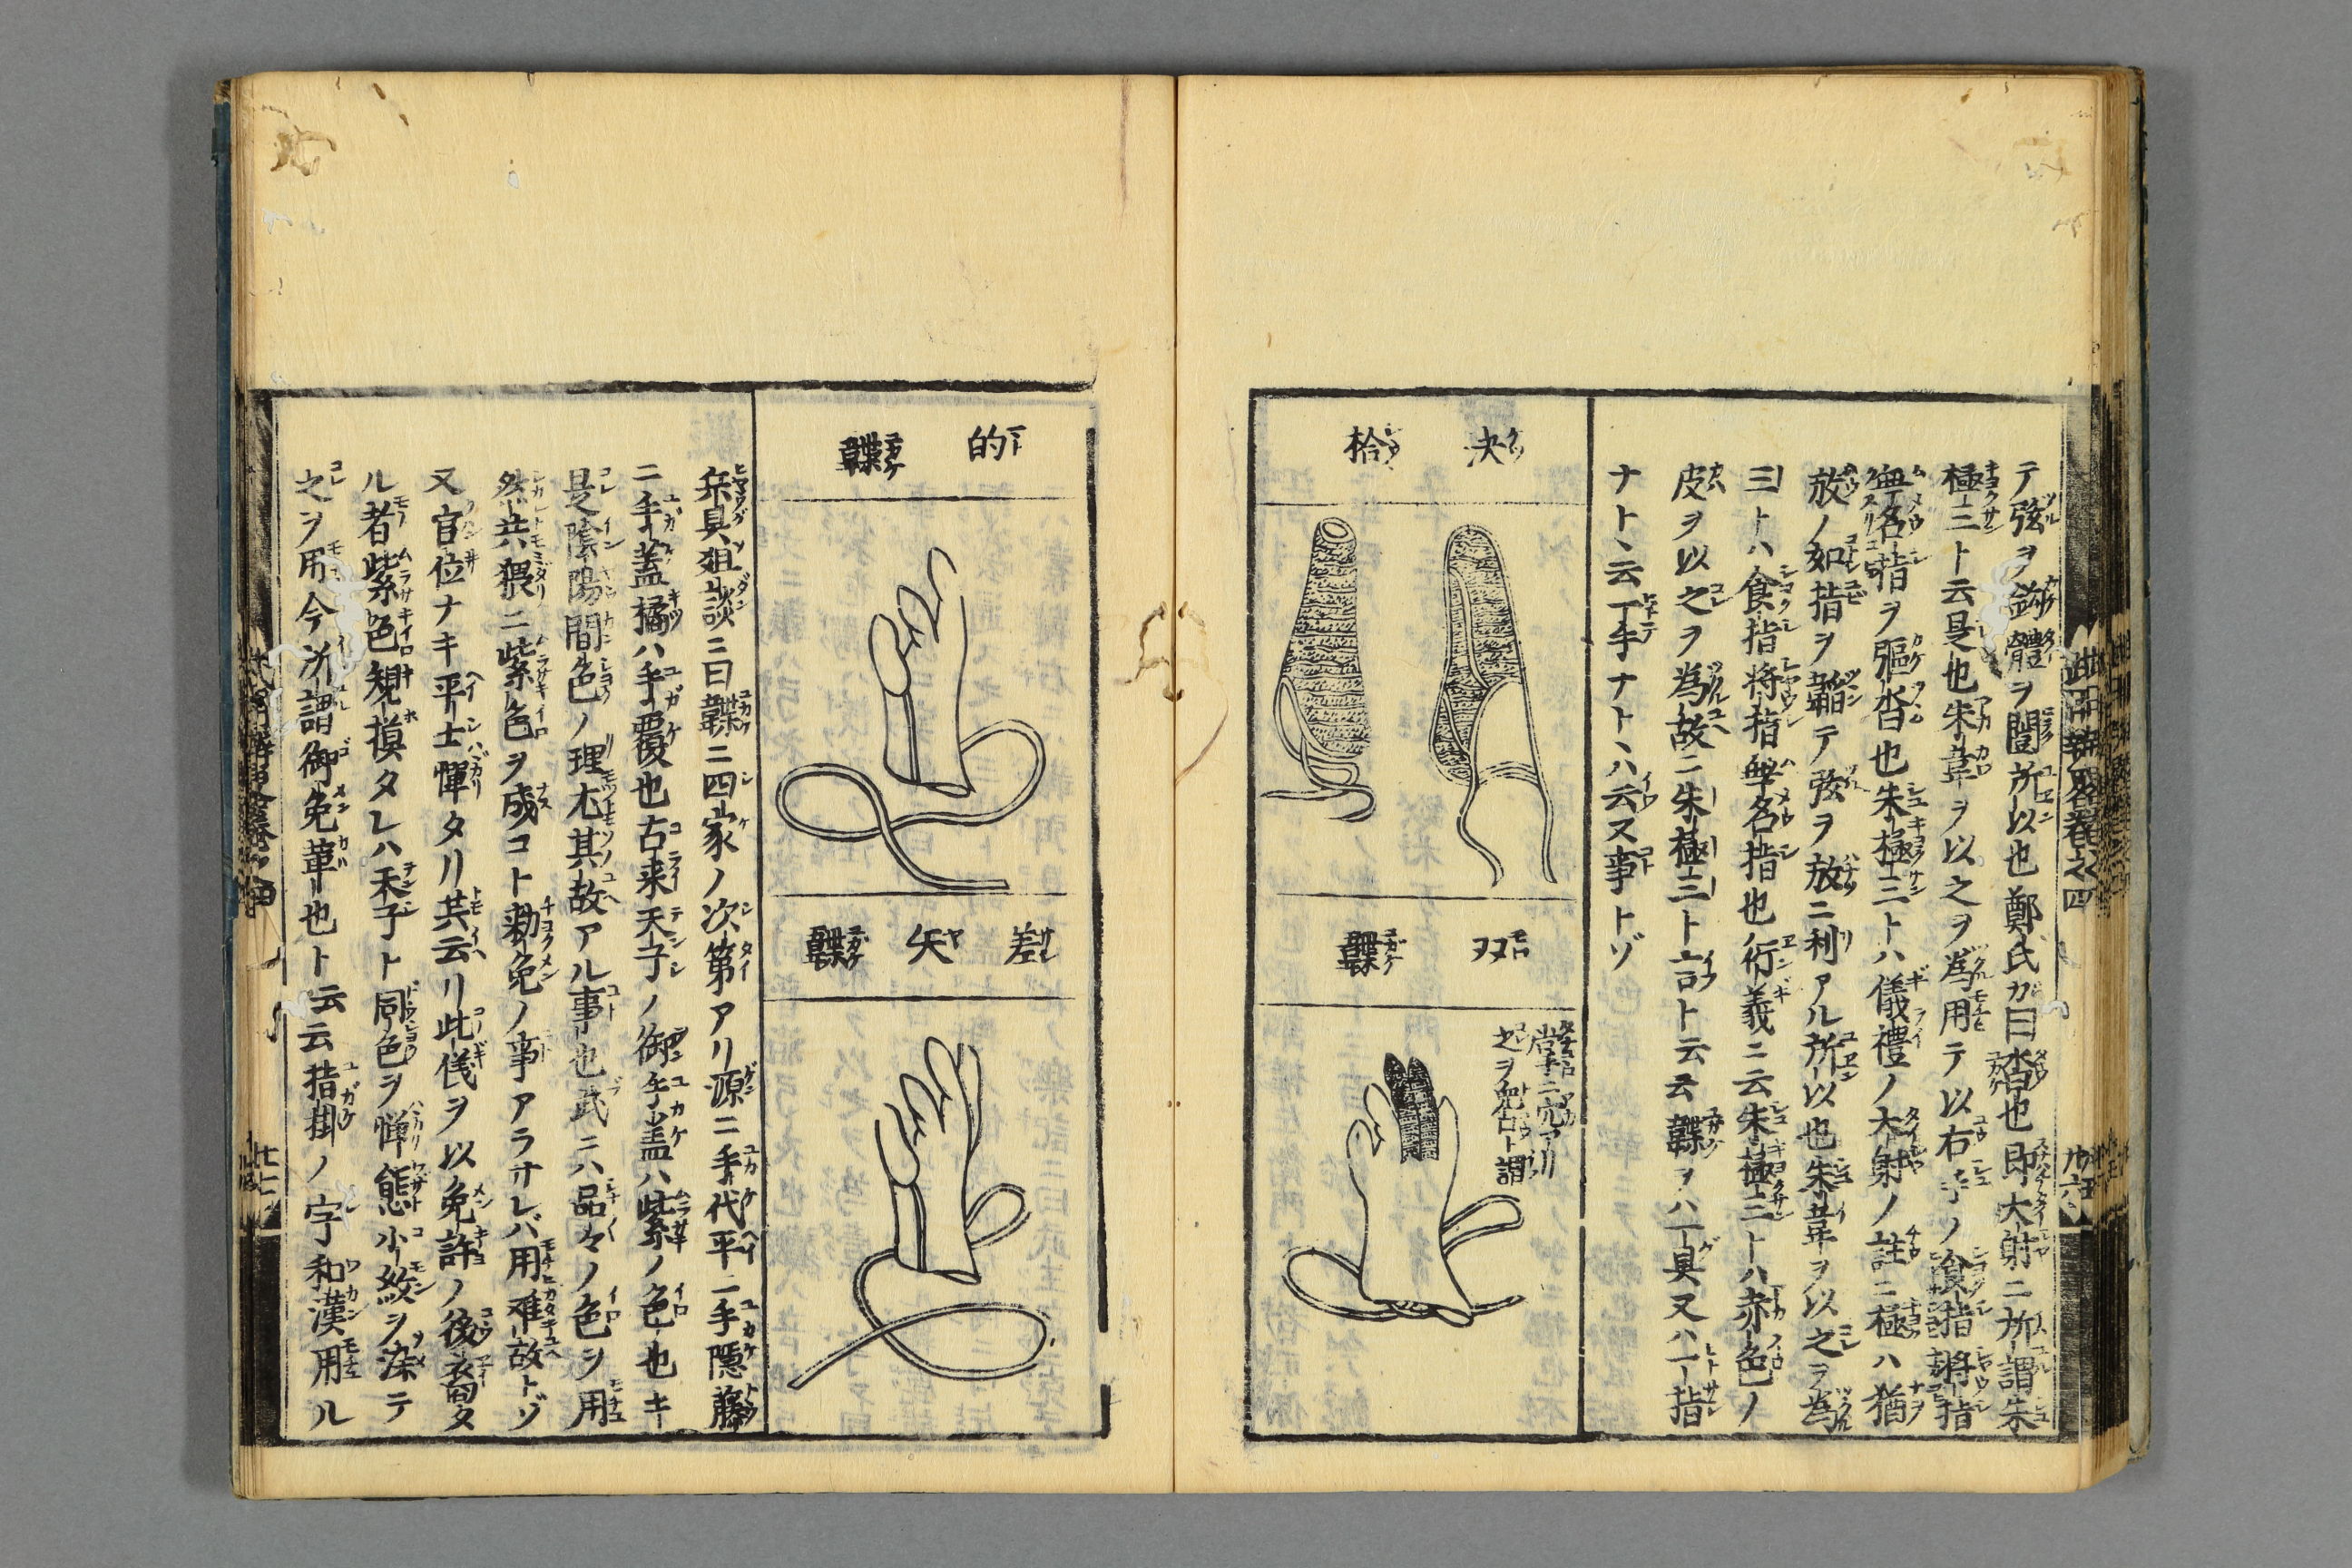 テ弦ヲ鈎體ヲ闓所以也鄭氏カ曰沓也即大射ニ所謂朱
極三ト云是也朱韋ヲ以之ヲ為用テ以右手ノ食指將指
無名指ヲ彄沓也朱極三トハ儀禮ノ大射ノ註ニ極ハ猶
放ノ如指ヲ韜テ弦ヲ放ニ利アル所以也朱韋ヲ以之ヲ為
三トハ食指将指無名指也衍義ニ云朱極三トハ赤色ノ
皮ヲ以之ヲ為故ニ朱極三ト言ト云云韘ヲハ一具又ハ一指
ナト、云一手ナト、ハ云又事トゾ
決
拾
双
韘
的
韘
差
矢
韘
桒具爼談ニ曰韘ニ四家ノ次第アリ源ニ手代平ニ手隠藤
ニ手蓋橘ハ手覆也古来天子ノ御手盖ハ紫ノ色也キ
是陰陽間色ノ理尤其故アル事也武ニハ品々ノ色ヲ用
然共猥ニ紫色ヲ成コト勅免ノ事アラサレバ用难故トゾ
又官位ナキ平士憚タリ共云リ此儀ヲ以免許ノ後裔タ
ル者紫色規摸タレハ天子ト同色ヲ憚態小紋ヲ染テ
之ヲ用今所謂御免革也ト云云指掛ノ字和漢用ル